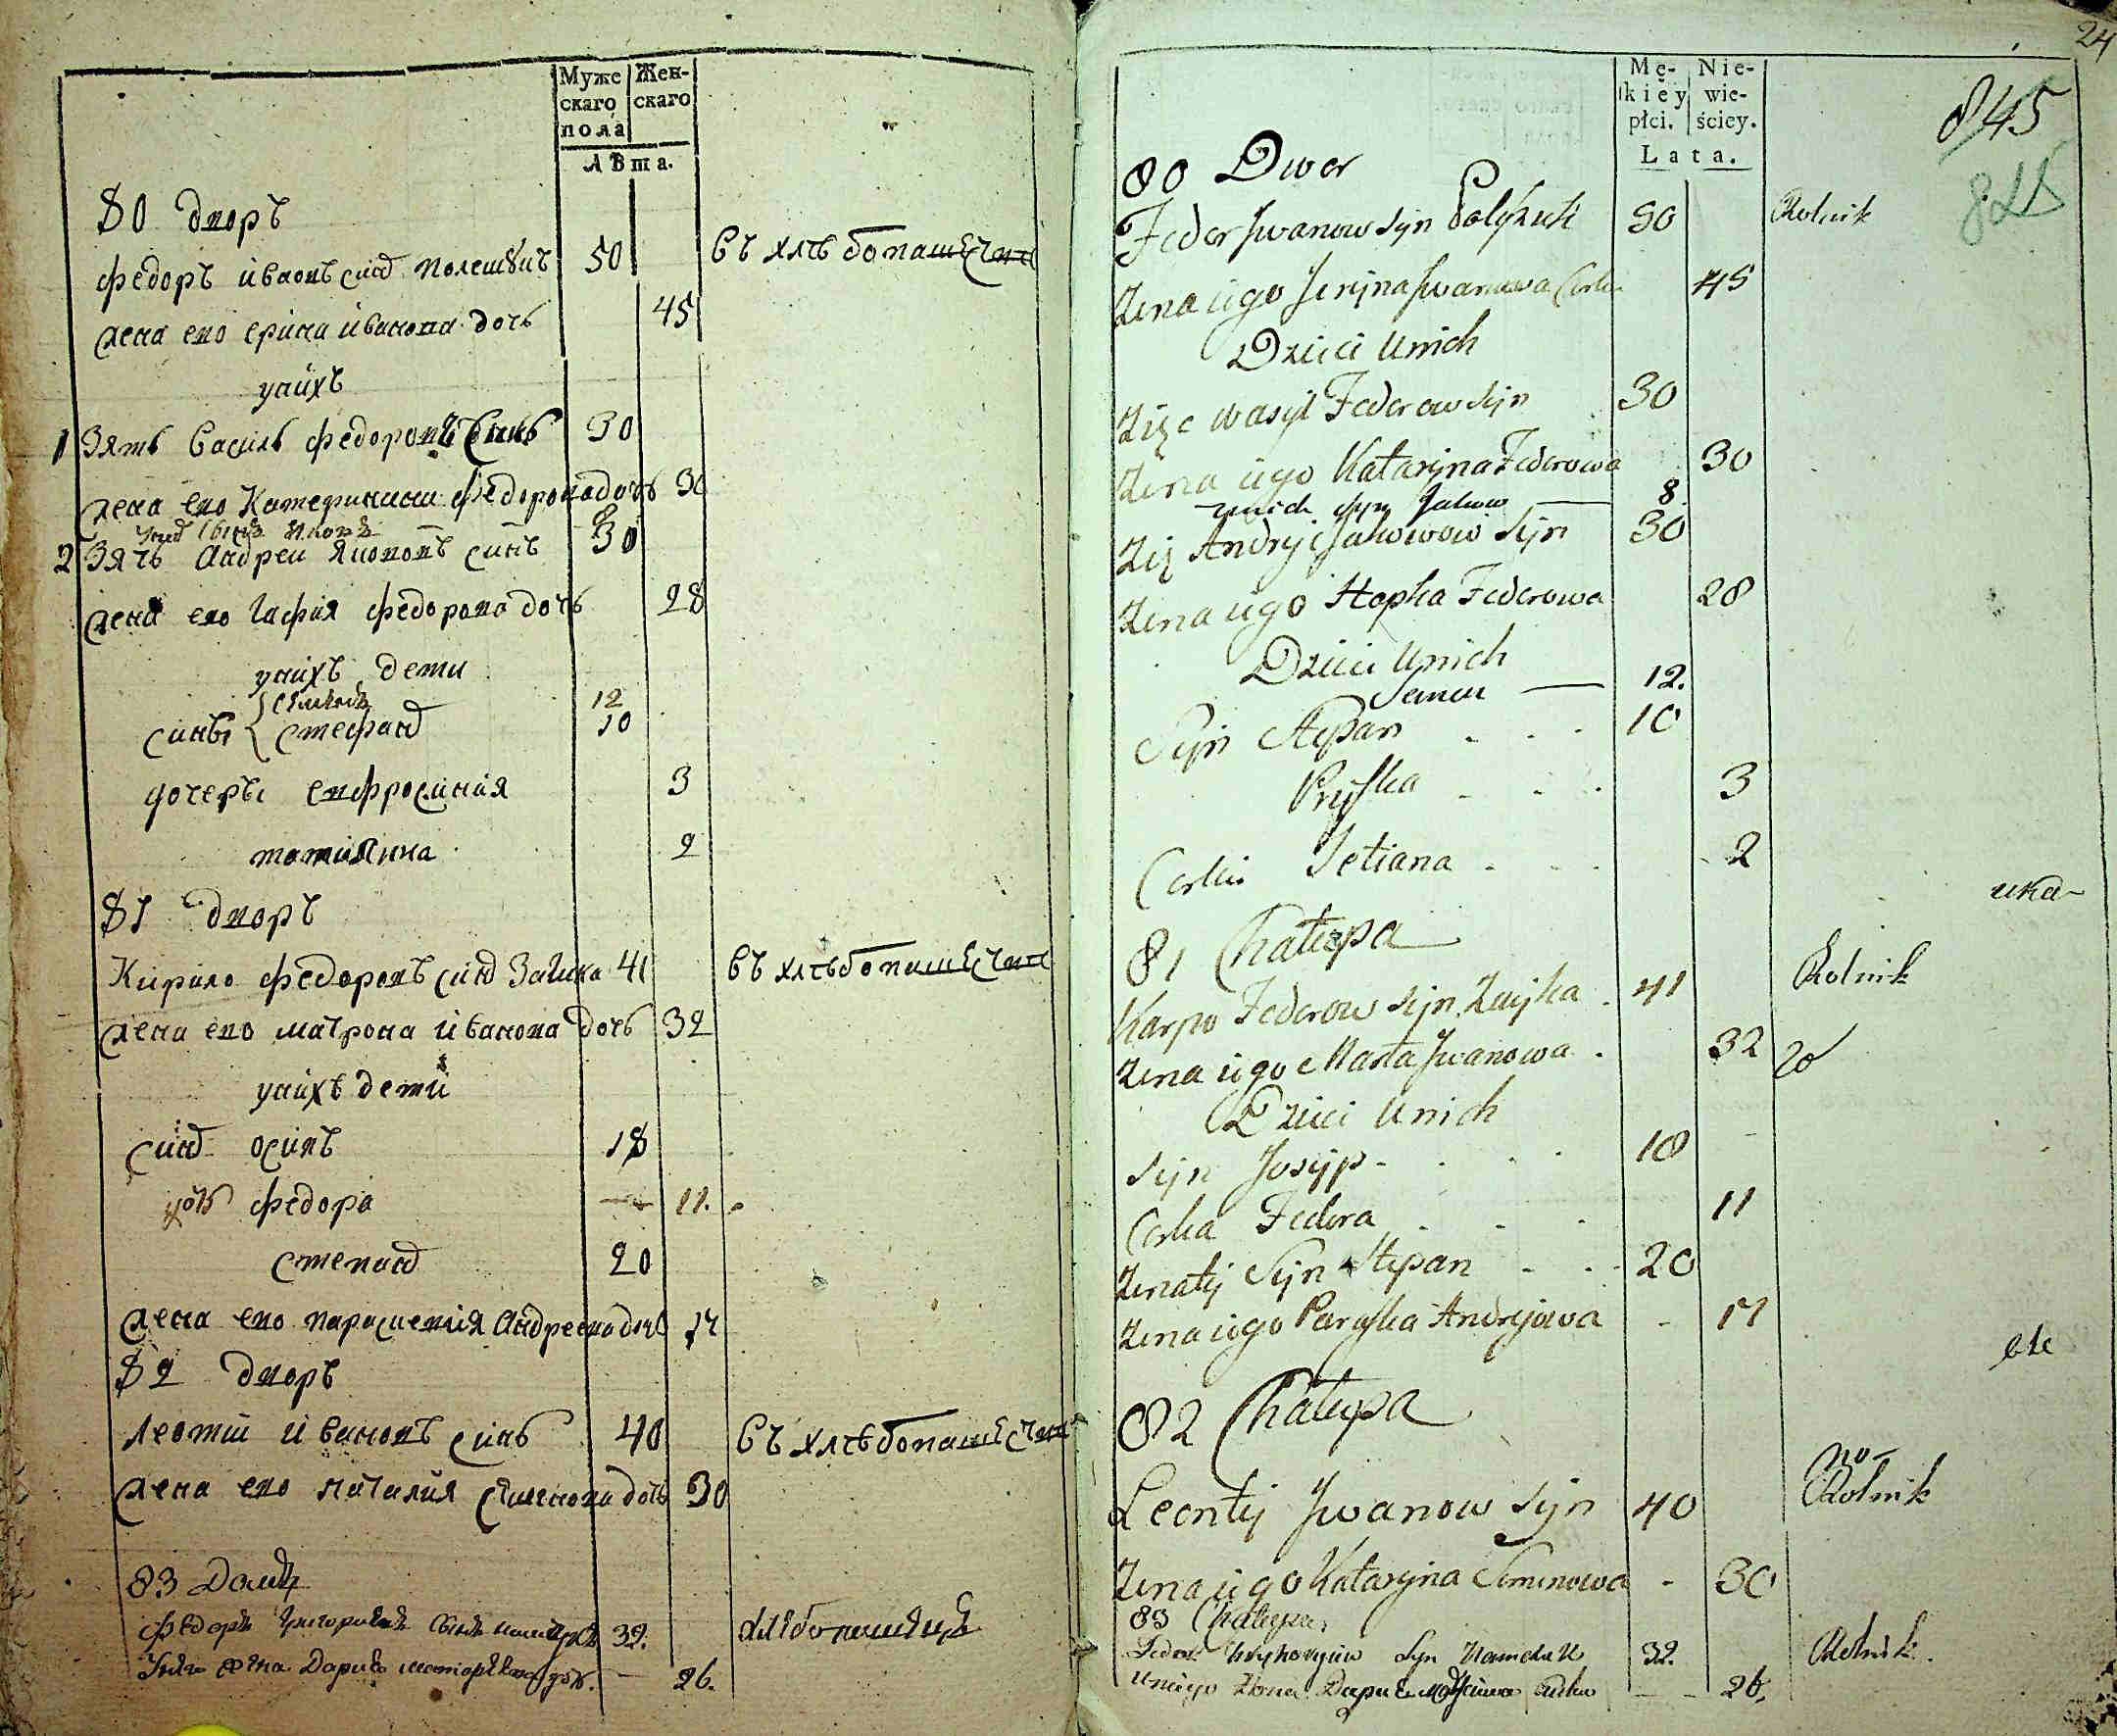 Муже
скаго
пола
Жен-
скаго
Лѣта.
80 дворъ
федоръ ивановъ синъ полешукъ 50
жена его ерина иванова дочь 45
у нихъ
1 Зять василь федоровъ синъ 30
жена его Катеринина федорова дочь 30
8
2 Зять андреи якововъ синъ 30
жена его гафия федорова дочь 28
у нихъ дети
12
сины стефанъ 10
дочеры ефросиния 3
татияна 2
81 дворъ
Кирило федоровъ синъ Заика 41
жена его матрона иванова дочь 32
у нихъ дети
синъ осипъ 18
дочь федора 11.
степанъ 20
жена его параскевия андреева дочь 17
82 дворъ
леотий ивановъ синъ 40
жена его наталия дочь 30
83 Домъ
Федоръ Григориевъ сынъ 32.
У него жена Дария 26.
24
Mę-
ſkiéy
płci.
Nie-
wie-
ściey.
Lata.
845
80 Dwor
Fedor Jwanow Syn 50 Rolnik
Zena iego Jeryna Jwanowa Corka 45
Dzieci Unich
Zięc Wasyl Fedorow Syn 30
Zena iego Kataryna Fedorowa 30
unich syn Jakow 8.
Zię Andryi Jakowow Syn 30
Zena iego Hapka Fedorowa 28
Dzieci Unich
Semen 12.
Syn Stepan 10
Pryſka 3
Corki Tetiana 2
81 Chałupa
Karpo Fedorow Syn Zaijka 41 Rolnik
Zena iego Marta Jwanowa 32
Dzieci Unich
Syn Josyp 18
Corka Fedora 11
Zenaty Syn Stepan 20
Zena iego Paraſka Andryjowa 17
82 Chałupa
Leontij Jwanow Syn 40 Rolnik
Zena iego Kataryna Semenowa 30
83 Chałupa
Fedor Hryhoryiow Syn 32. Rolnik.
Uniego Zona Daria 26.